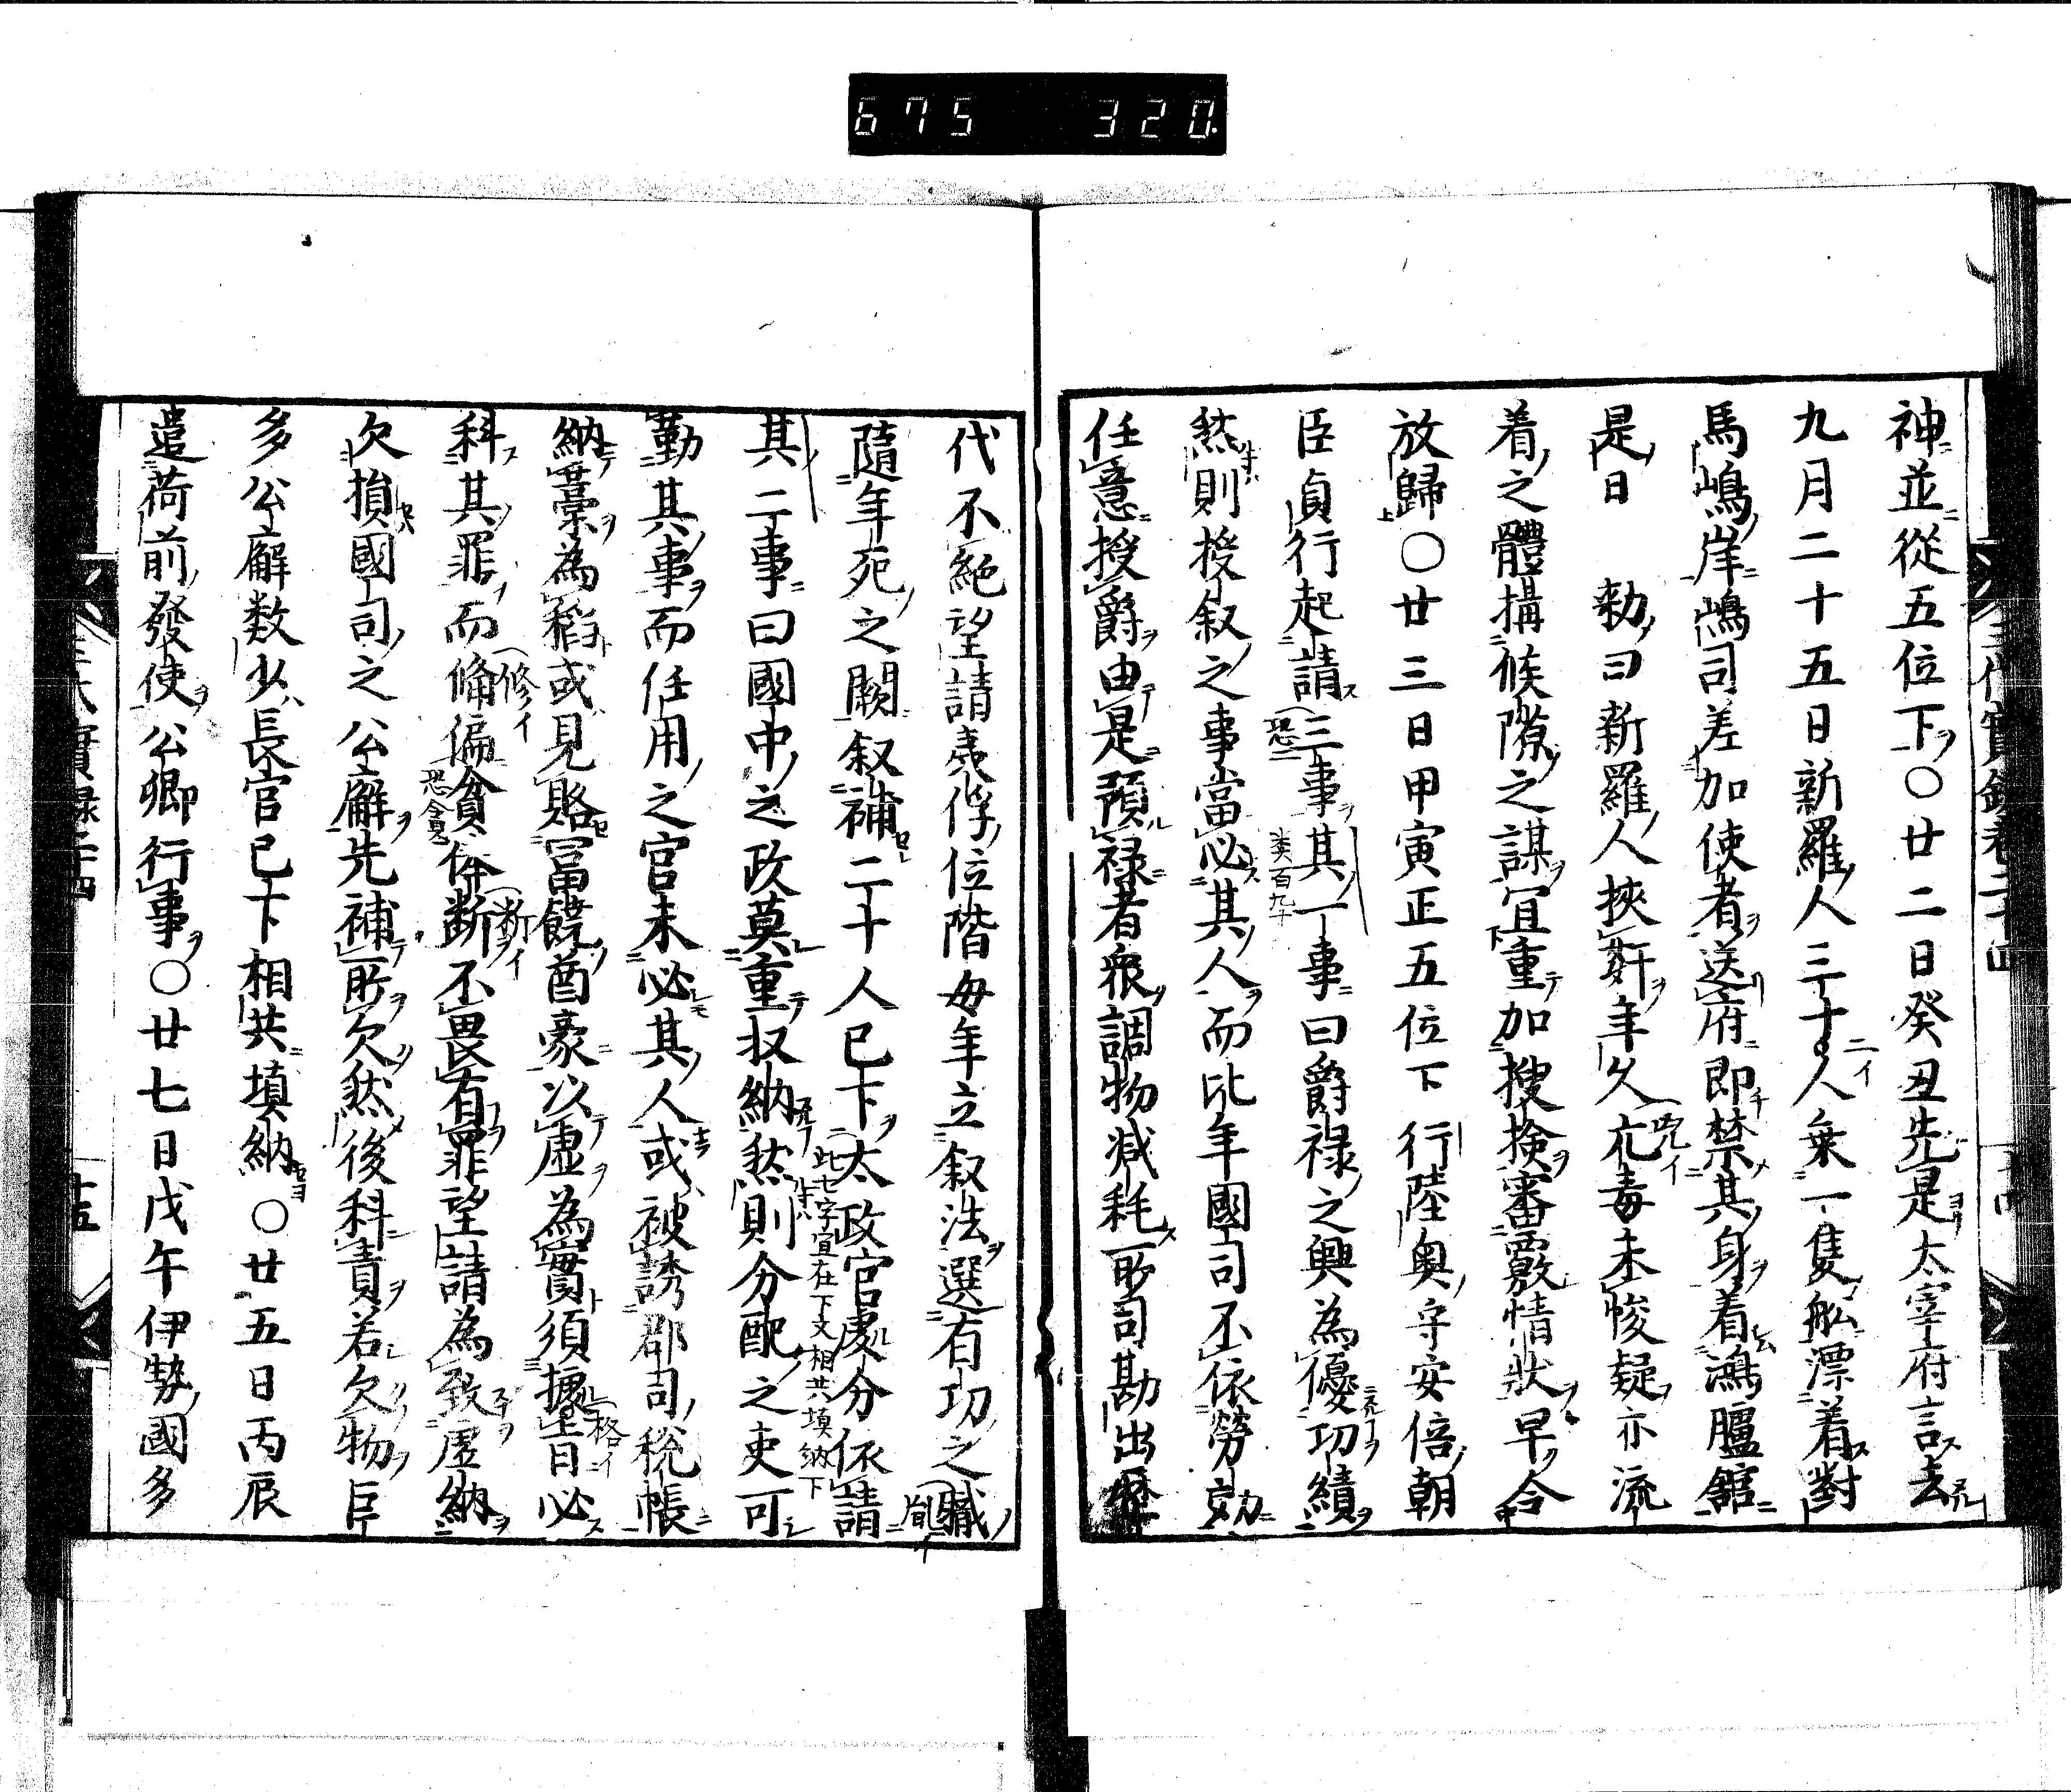 675 320
神並從五位下〇廿二日癸丑先是太宰府言去
九月二十五日新羅人三十人乗一隻舩漂着對
馬嶋岸嶋司差加使者送府即禁其身着鴻臚舘
是日 勅曰新羅人挾姧年久亢毒未悛疑亦流
着之體搆候隙之謀宜重加搜撿審覈情狀早令
放歸〇廿三日甲寅正五位下行陸奥守安倍朝
臣貞行起請三事其一事曰爵禄之興為優功績
然則授叙之事當必其人而比年國司不依勞効
任意授爵由是預禄者衆調物减耗所司勘出
代不絶望請夷俘位階毎年立叙法選有功之職
隨年死之闕叙補二十人已下太政官處分依請
其二事曰國中之政莫重收納然則分配之吏可
勤其事而任用之官未必其人或被誘郡司税帳
納藁為稻或見賂冨饒酋豪以虚為實須據旨必
科其罪而脩偏貪斷不畏有罪望請為致虚納
欠損國司之公廨先補所欠然後科責若欠物巨
多公廨数少長官已下相共填納〇廿五日丙辰
遣荷前發使公卿行事〇廿七日戊午伊勢國多